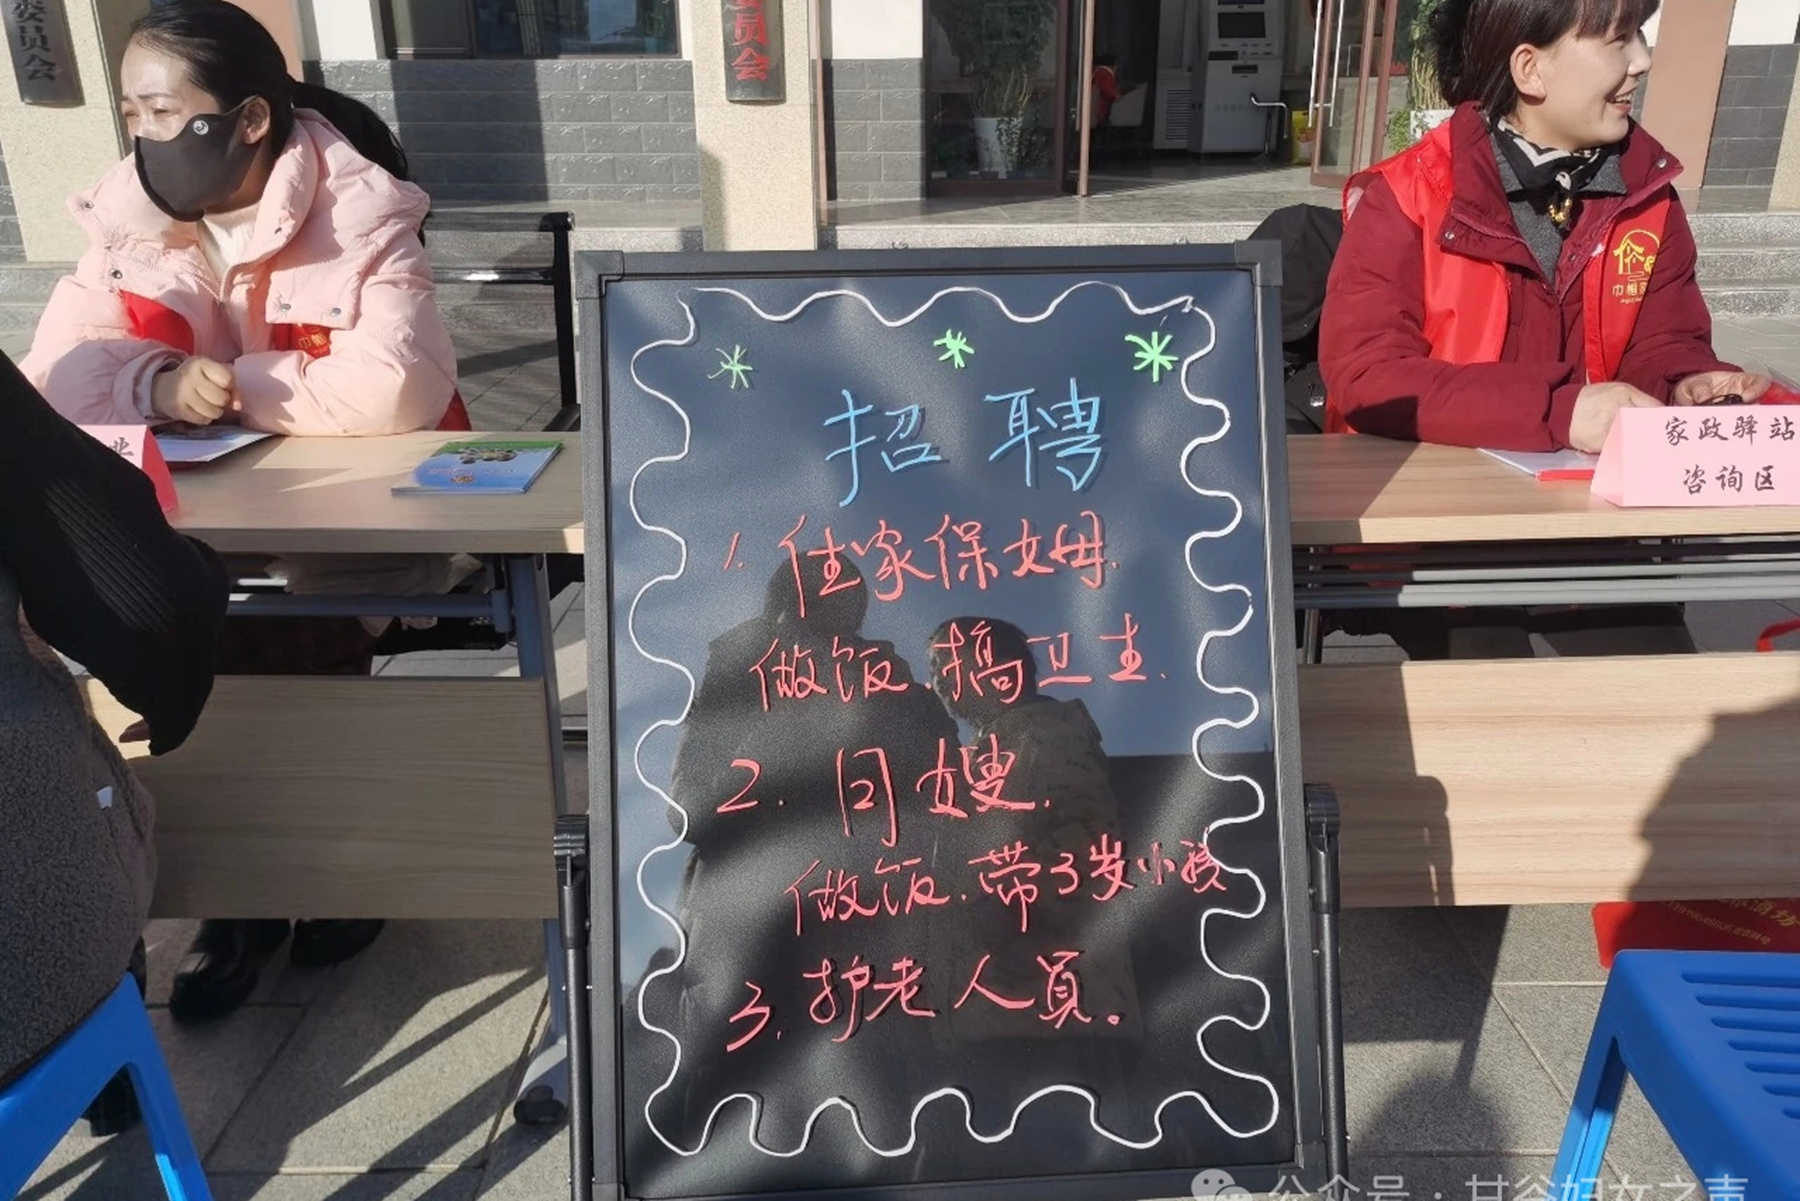 委员会
委员会
招聘
1. 住家保姆.
做饭.搞卫生.
2. 月嫂.
做饭.带3岁小孩
3. 护老人员。
家政驿站
咨询区
业
巾帼
巾帼家
公众号：甘谷妇女之声